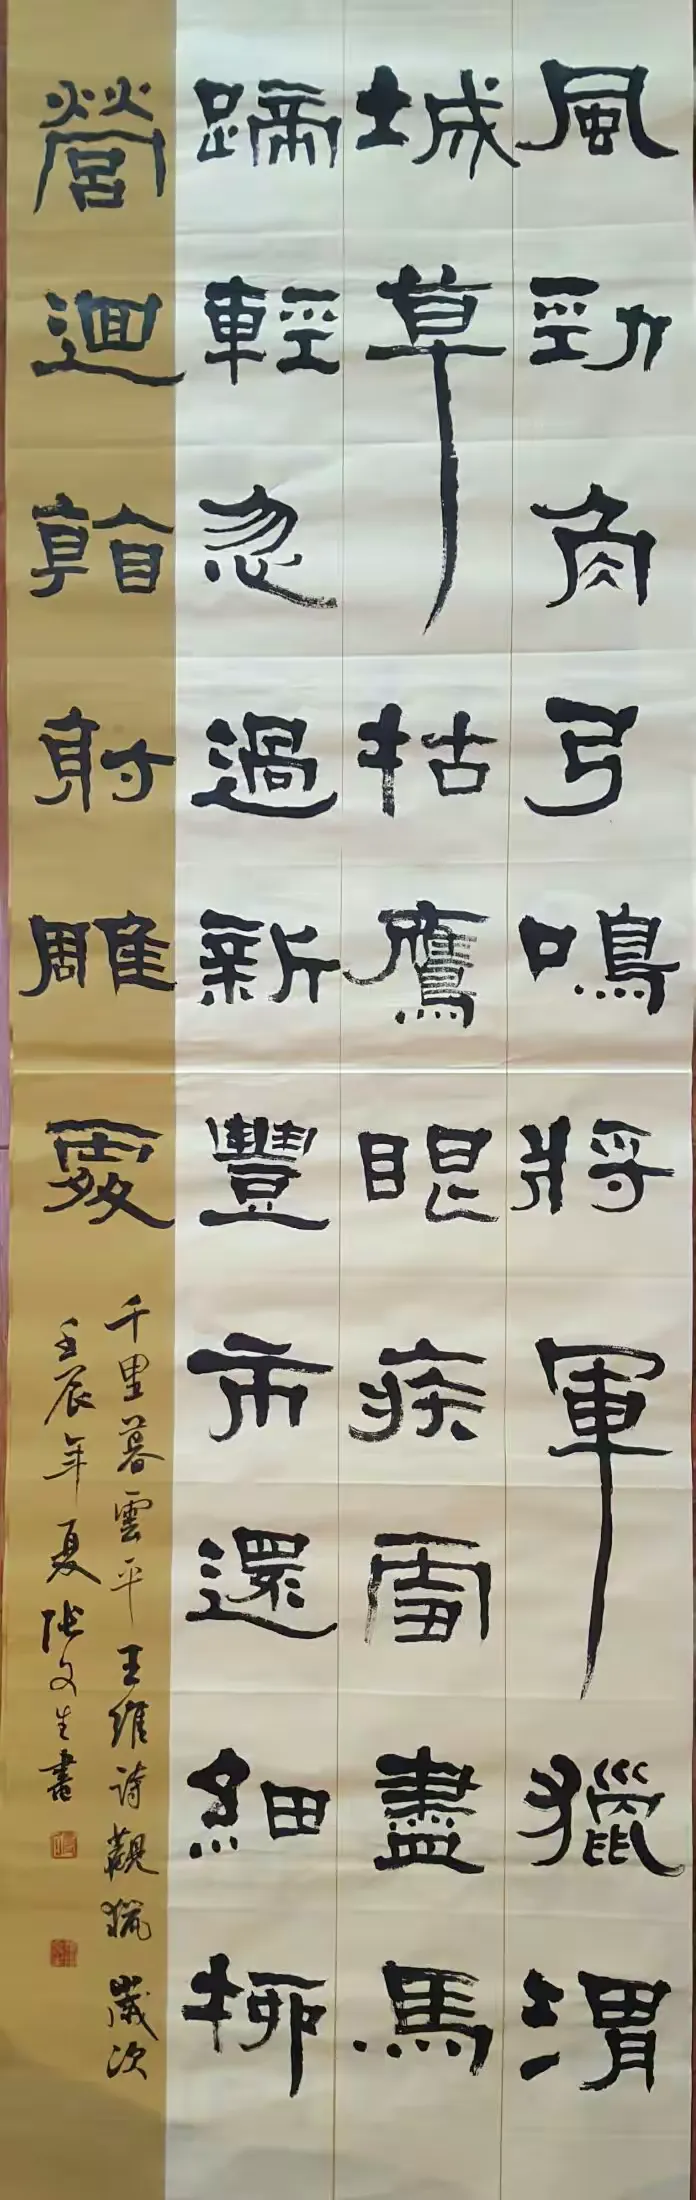 風勁角弓鳴將軍獵渭
城草枯鷹眼疾雪盡馬
蹄輕忽過新豐市還細柳
營迴𩕄射雕處
千里暮雲平王維詩觀獵歲次
壬辰年夏張文生書